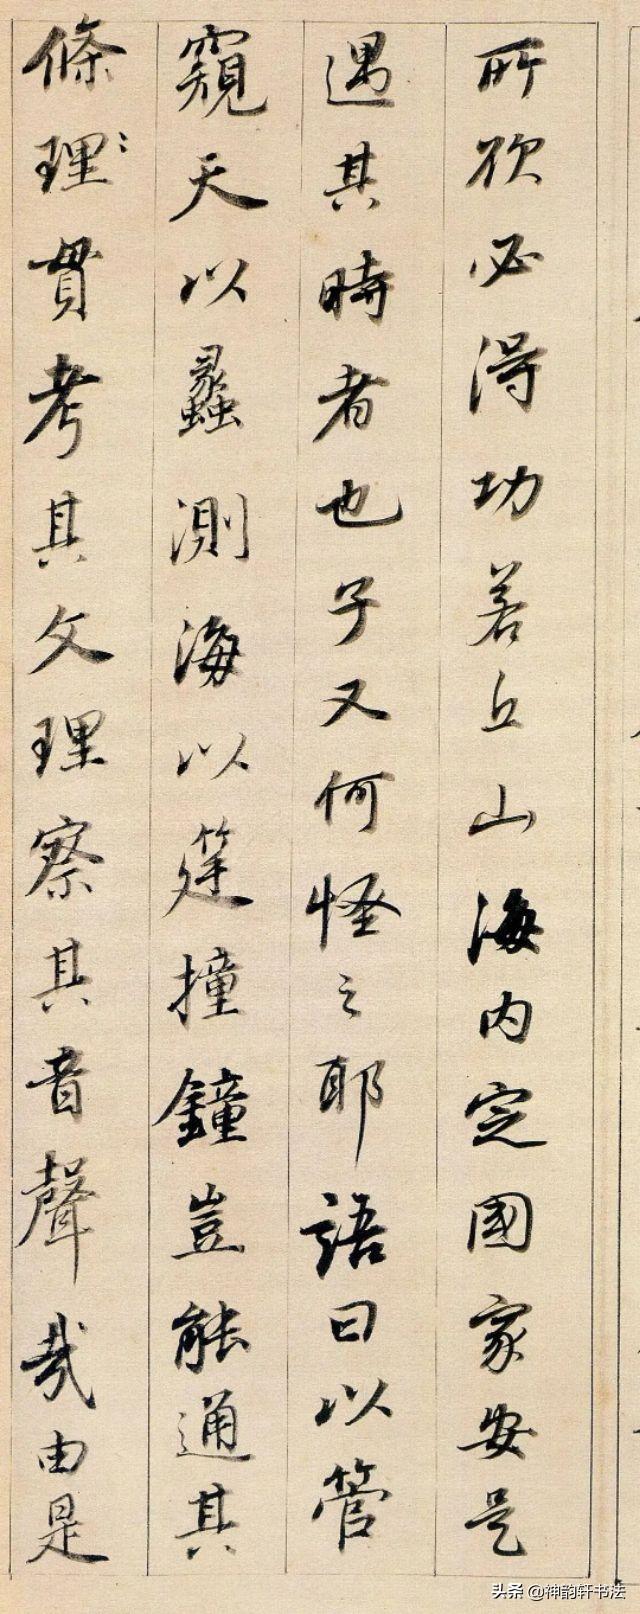 所欲必得功若丘山海内定國家安是
遇其時者也子又何怪之耶語曰以管
窺天以蠡測海以筳撞鐘豈能通其
條理貫考其文理察其音聲哉由是
头条 @神韵轩书法